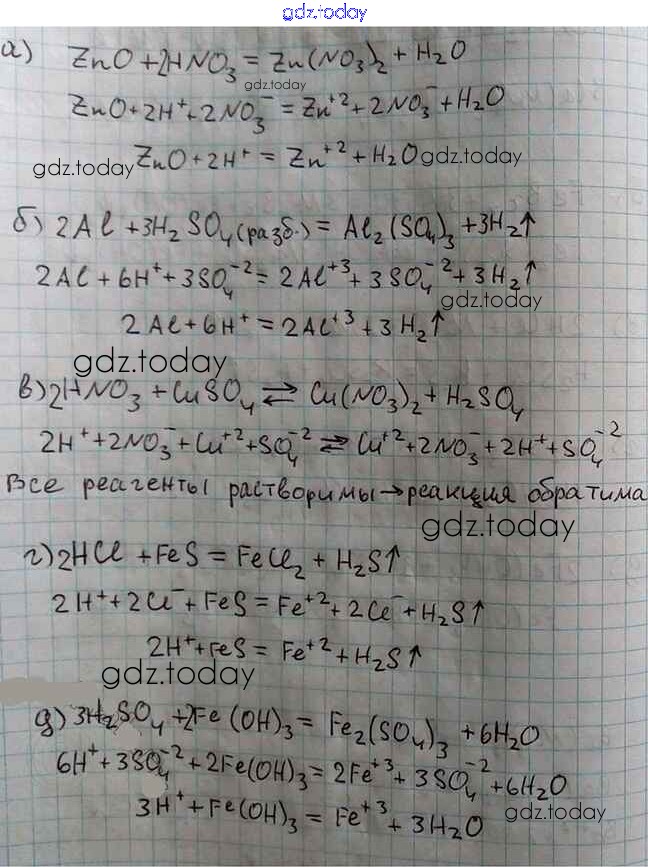 gdz.today
а) ZnO + 2HNO₃ = Zn(NO₃)₂ + H₂O
gdz.today
ZnO + 2H⁺ + 2NO₃⁻ = Zn⁺² + 2NO₃⁻ + H₂O
ZnO + 2H⁺ = Zn⁺² + H₂O gdz.today
gdz.today
б) 2Al + 3H₂SO₄(разб.) = Al₂(SO₄)₃ + 3H₂↑
2Al + 6H⁺ + 3SO₄⁻² = 2Al⁺³ + 3SO₄⁻² + 3H₂↑
gdz.today
2Al + 6H⁺ = 2Al⁺³ + 3H₂↑
gdz.today
в) 2HNO₃ + CuSO₄ ⇄ Cu(NO₃)₂ + H₂SO₄
2H⁺ + 2NO₃⁻ + Cu⁺² + SO₄⁻² ⇄ Cu⁺² + 2NO₃⁻ + 2H⁺ + SO₄⁻²
Все реагенты растворимы → реакция обратима
gdz.today
г) 2HCl + FeS = FeCl₂ + H₂S↑
2H⁺ + 2Cl⁻ + FeS = Fe⁺² + 2Cl⁻ + H₂S↑
2H⁺ + FeS = Fe⁺² + H₂S↑
gdz.today
д) 3H₂SO₄ + 2Fe(OH)₃ = Fe₂(SO₄)₃ + 6H₂O
6H⁺ + 3SO₄⁻² + 2Fe(OH)₃ = 2Fe⁺³ + 3SO₄⁻² + 6H₂O
3H⁺ + Fe(OH)₃ = Fe⁺³ + 3H₂O
gdz.today